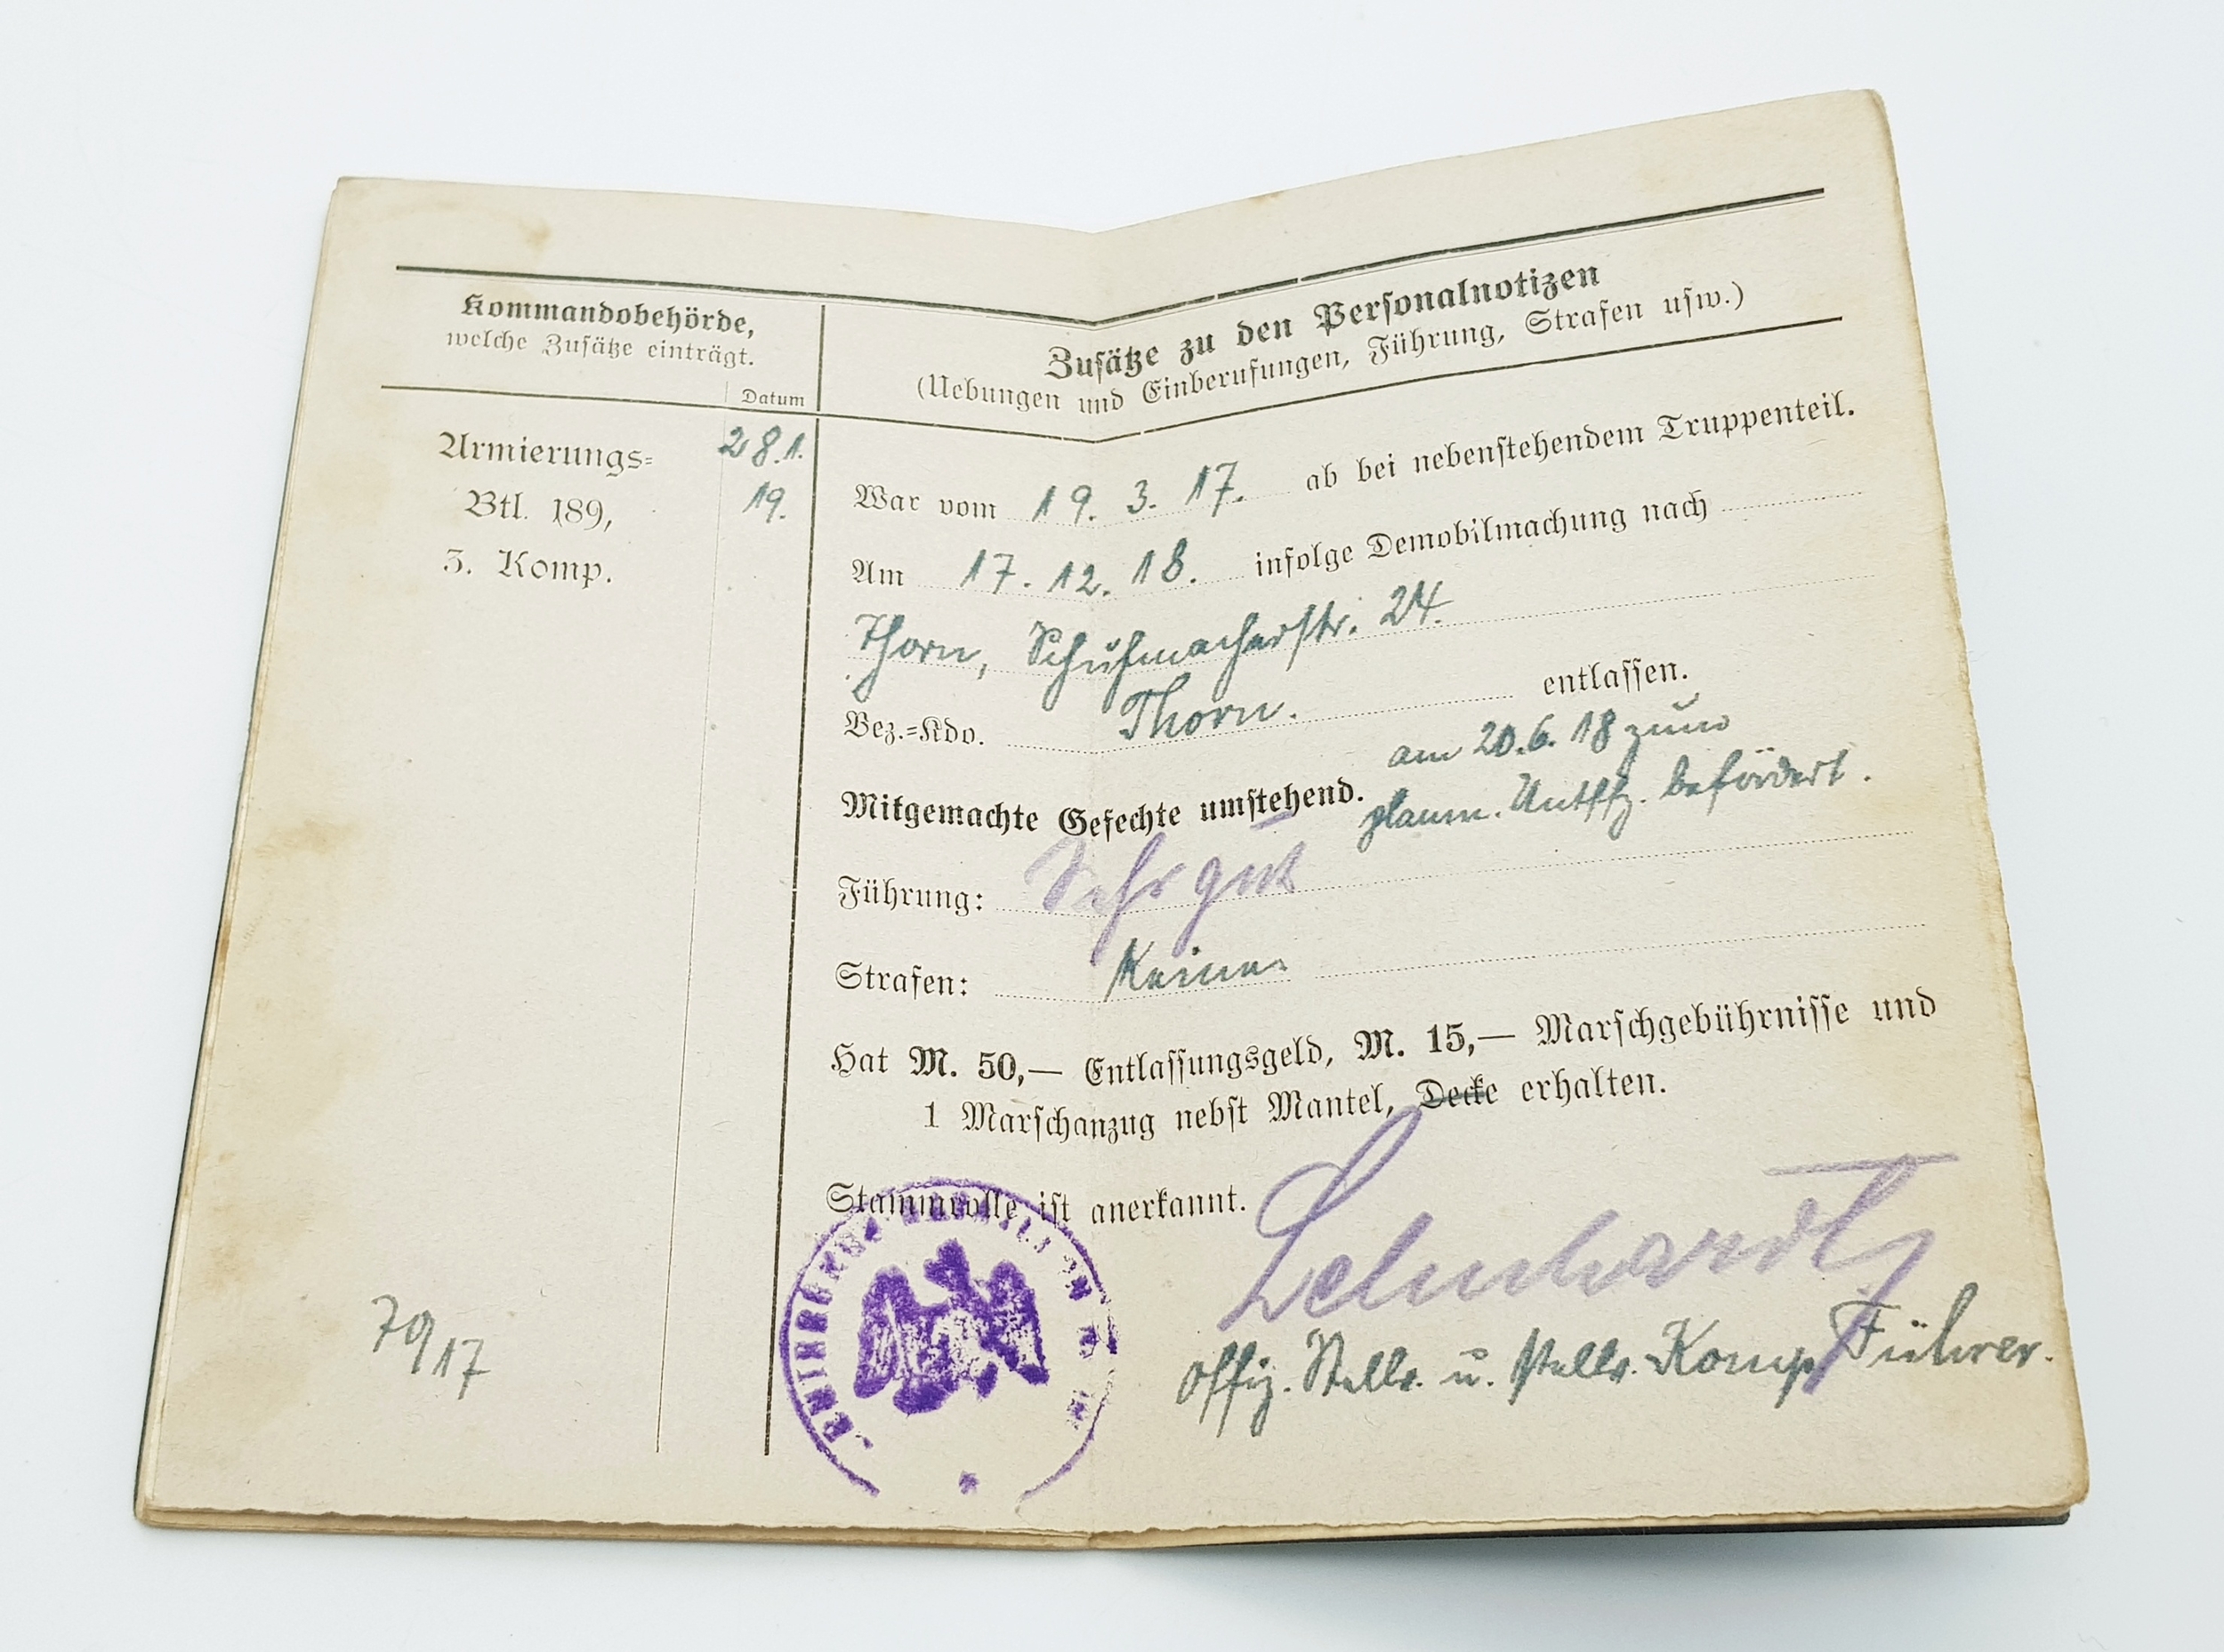 Kommandobehörde,
welche Zusätze einträgt.
Datum
Armierungs=
Btl. 189,
3. Komp.
28.1.
19.
70/17
Zusätze zu den Personalnotizen
(Uebungen und Einberufungen, Führung, Strafen usw.)
War vom 19. 3. 17. ab bei nebenstehendem Truppenteil.
Am 17. 12. 18. infolge Demobilmachung nach
Thorn, Schuhmacherstr. 24.
Bez.=Kdo. Thorn. entlassen.
Mitgemachte Gefechte umstehend.
am 20.6.18 zum
planm. Untffz. befördert.
Führung: Sehr gut
Strafen: Keine
Hat M. 50,— Entlassungsgeld, M. 15,— Marschgebührnisse und
1 Marschanzug nebst Mantel, Decke erhalten.
Stammrolle ist anerkannt.
Lehnhardt
Offiz. Stellv. u. stellv. Komp. Führer.